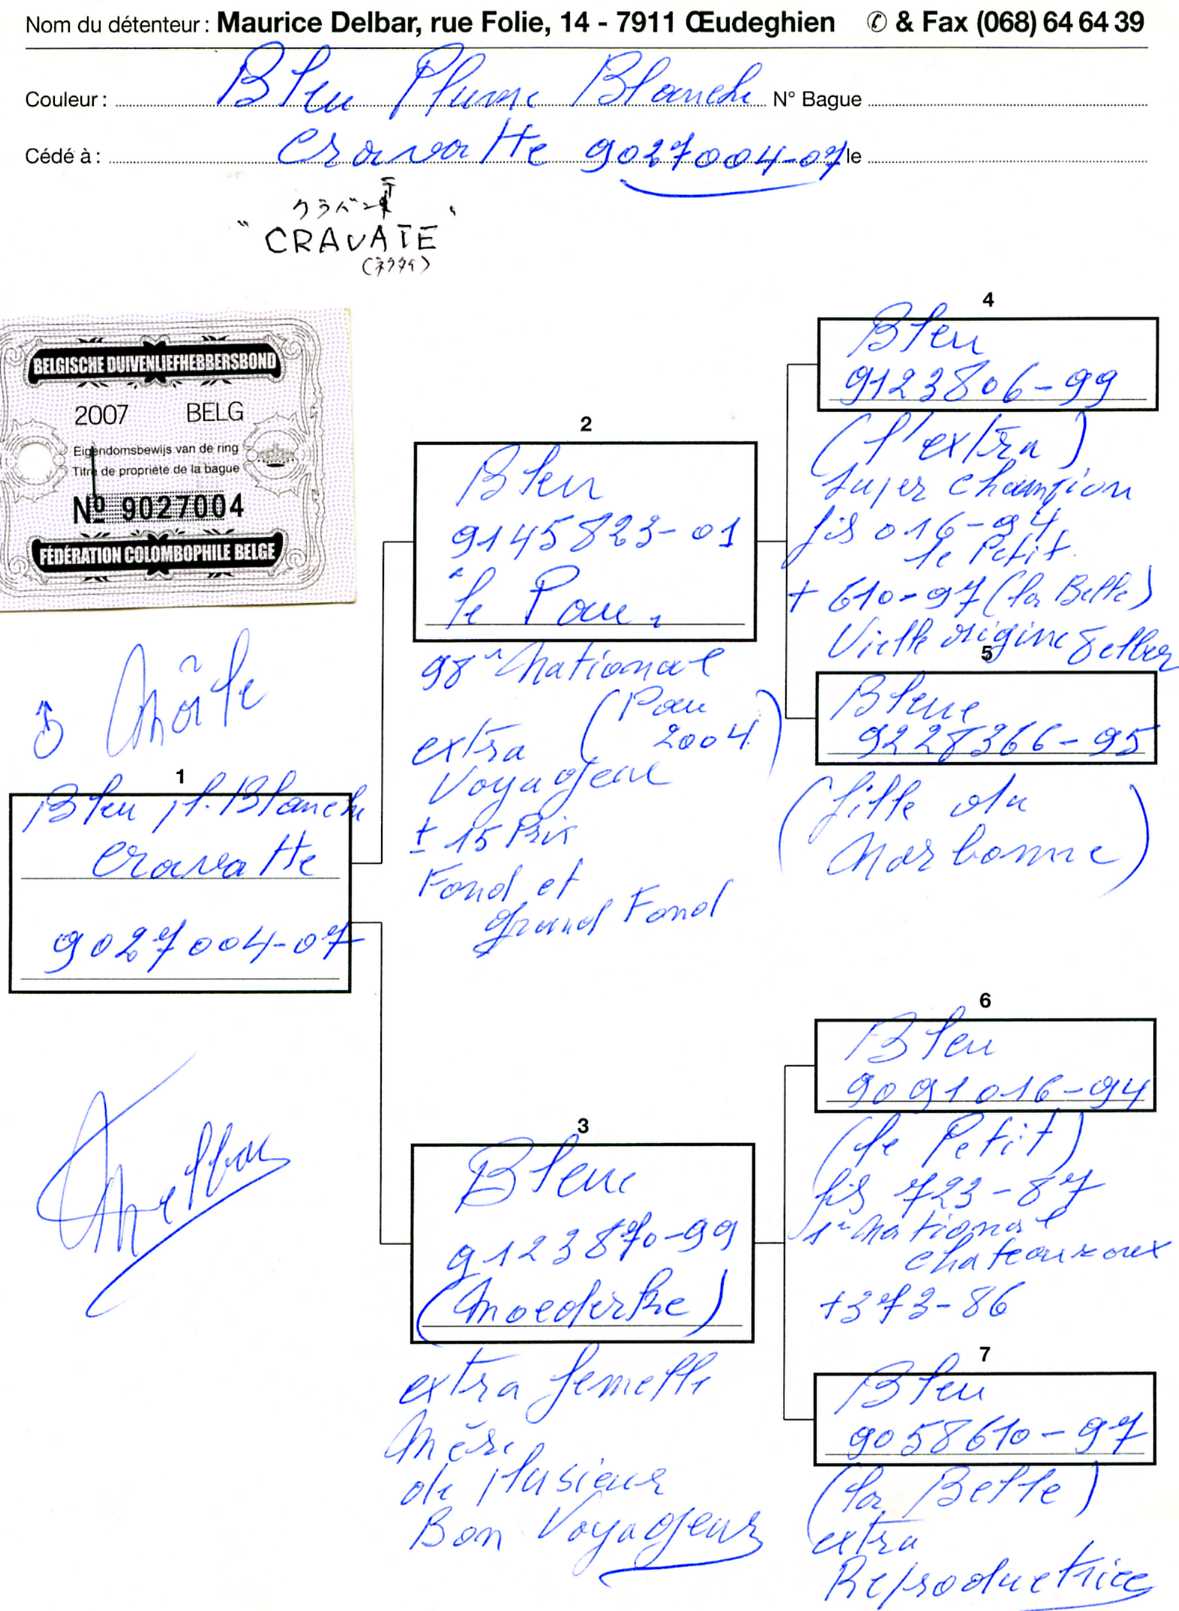 Nom du détenteur : Maurice Delbar, rue Folie, 14 - 7911 Œudeghien ✆ & Fax (068) 64 64 39
Couleur : Bleu Plume Blanche N° Bague
Cédé à : Cravatte 9027004-07 le
"CRAVATE"
(ネクタイ)
BELGISCHE DUIVENLIEFHEBBERSBOND
2007 BELG
Eigendomsbewijs van de ring
Titre de propriété de la bague
Nº 9027004
FÉDÉRATION COLOMBOPHILE BELGE
♂ Mâle
1
Bleu pl. Blanche
Cravatte
9027004-07
Delbar
2
Bleu
9145823-01
"le Pau"
98e National
(Pau
2004)
extra
Voyageur
± 15 Prix
Fond et
grand Fond
3
Bleue
9123870-99
(Moederke)
extra femelle
Mère
de plusieur
Bon Voyageur
4
Bleu
9123806-99
(l'extra)
super Champion
fis 016-94
le Petit
+ 610-97 (la Belle)
Vielle origine Delbar
5
Bleue
9228366-95
(fille du
Narbonne)
6
Bleu
9091016-94
(le Petit)
fis 723-87
1er National
chateauroux
+373-86
7
Bleu
9058610-97
(la Belle)
extra
Reproductrice